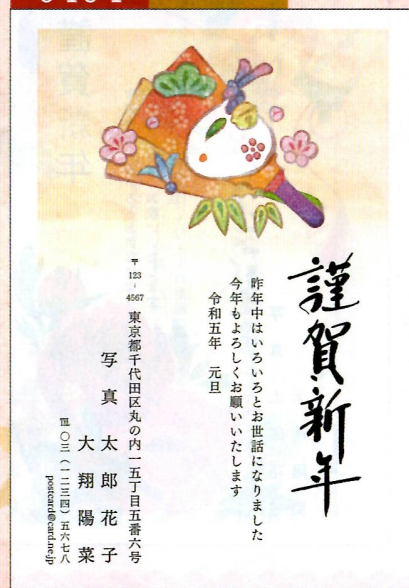 謹賀新年
昨年中はいろいろとお世話になりました
今年もよろしくお願いいたします
令和五年 元旦
〒123-4567 東京都千代田区丸の内一五丁目五番六号
写真 太郎 花子
大翔 陽菜
℡〇三(一二三四)五六七八
postcard@card.ne.jp